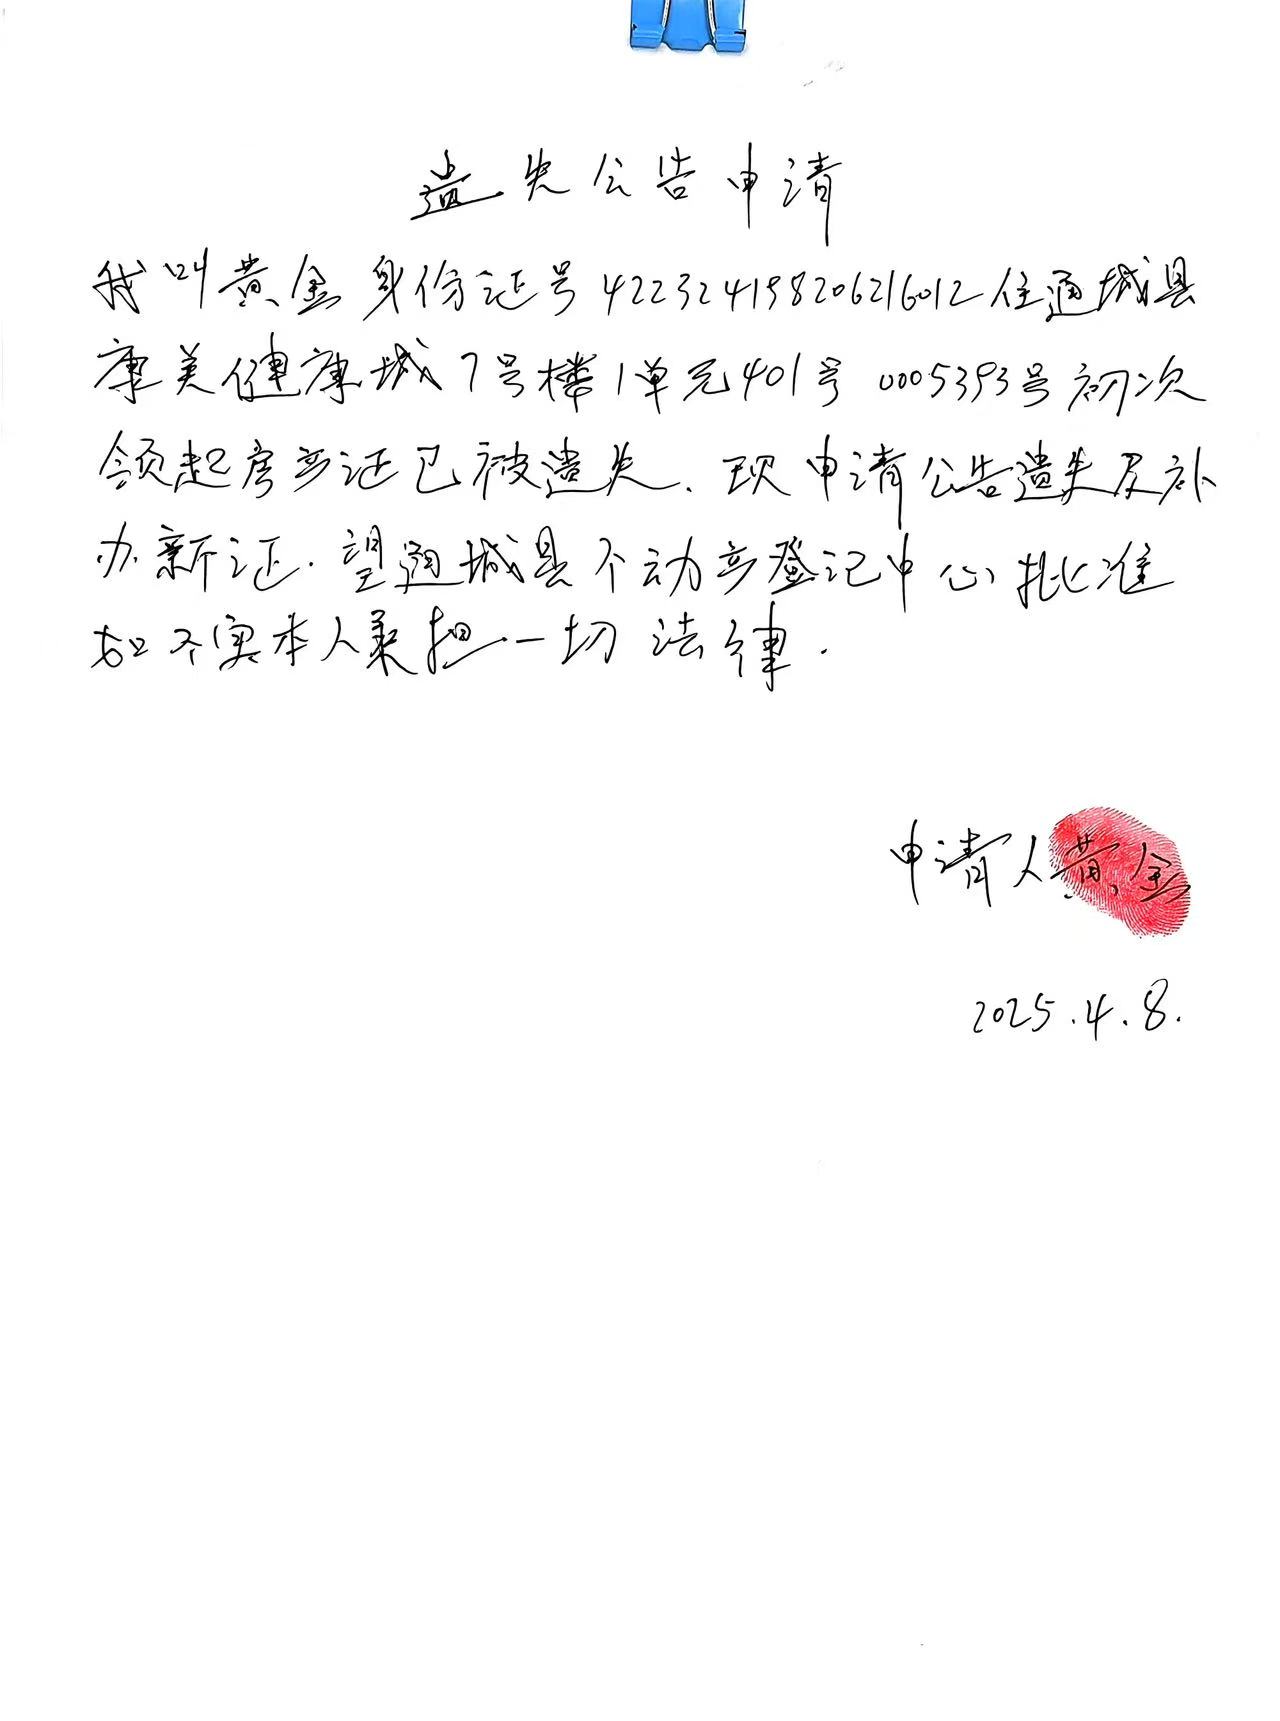 遗失公告申请
我叫黄金身份证号422324198206216012住通城县
康美健康城7号楼1单元401号 0005393号初次
领起房产证已被遗失、现申请公告遗失及补
办新证.望通城县不动产登记中心批准
如不实本人承担一切法律.
申请人黄金
2025.4.8.